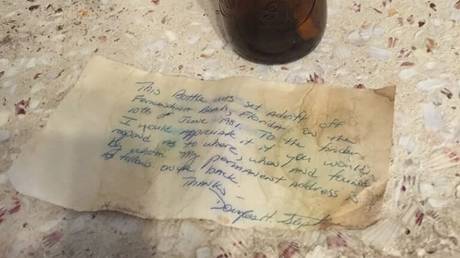 This Bottle was set adrift off
Fernandina Beach, Florida on the
10th of June 1981. To the finder,
I would appreciate it if you would
respond as to where, when and found
by whom. My permanent address is
as follows on the back.
Thanks -
Douglas H.